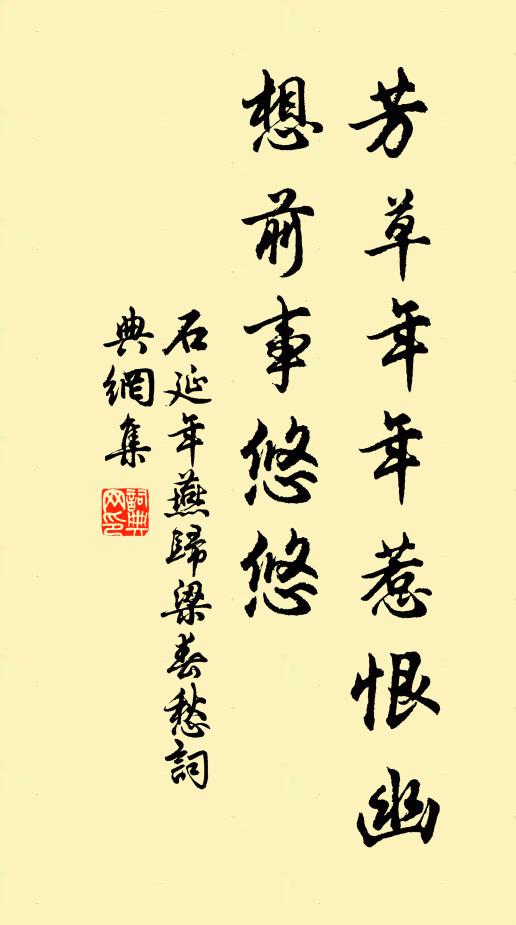 芳草年年惹恨幽
想前事悠悠
石延年燕歸梁春愁詞
典網集
詞典網印